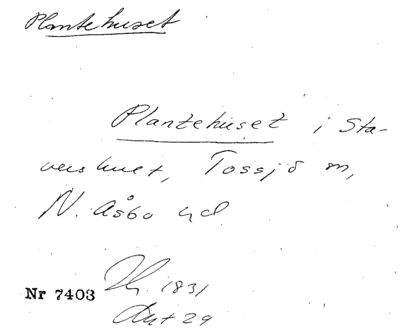 Plantehuset
Plantehuset i Sta-
vershuet, Tossjö m,
N. Åsbo hd
Nr 7403
1831
29